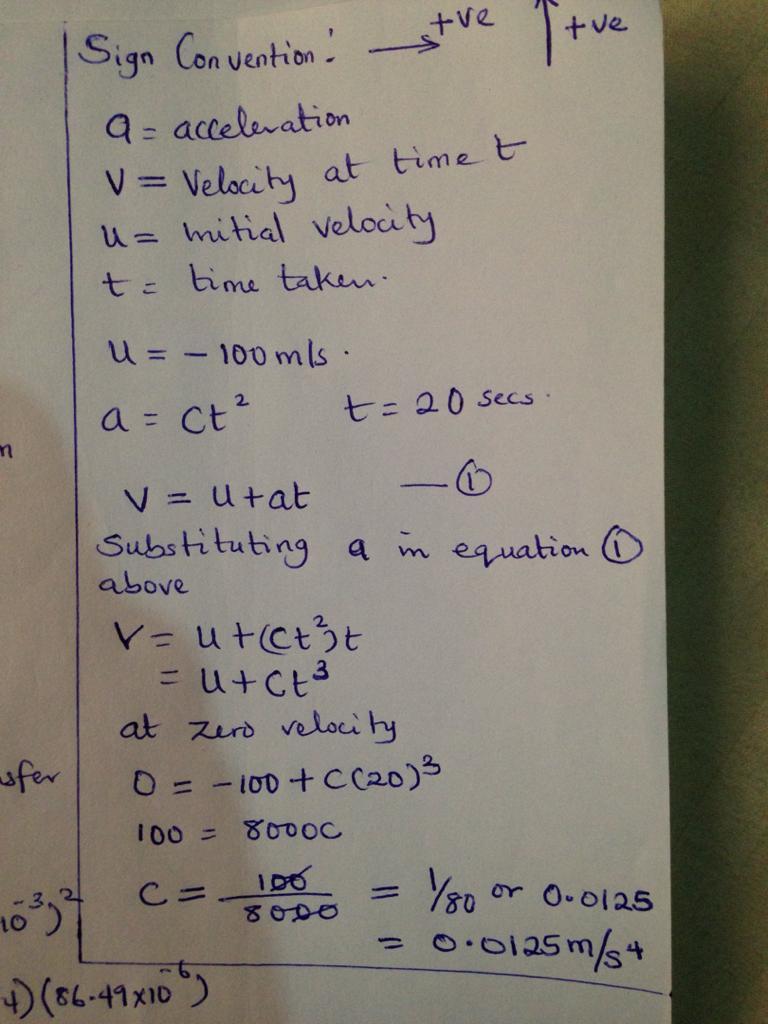 Sign Convention: → +ve ↑ +ve
a = acceleration
V = Velocity at time t
u = initial velocity
t = time taken.
u = - 100 m/s.
a = Ct² t = 20 secs.
V = u + at — ①
Substituting a in equation ①
above
V = u + (Ct²)t
= u + Ct³
at zero velocity
0 = -100 + C(20)³
100 = 8000C
C = 100/8000 = 1/80 or 0.0125
= 0.0125 m/s⁴
n
sfer
10⁻³)²
4)(86.49x10⁻⁶)